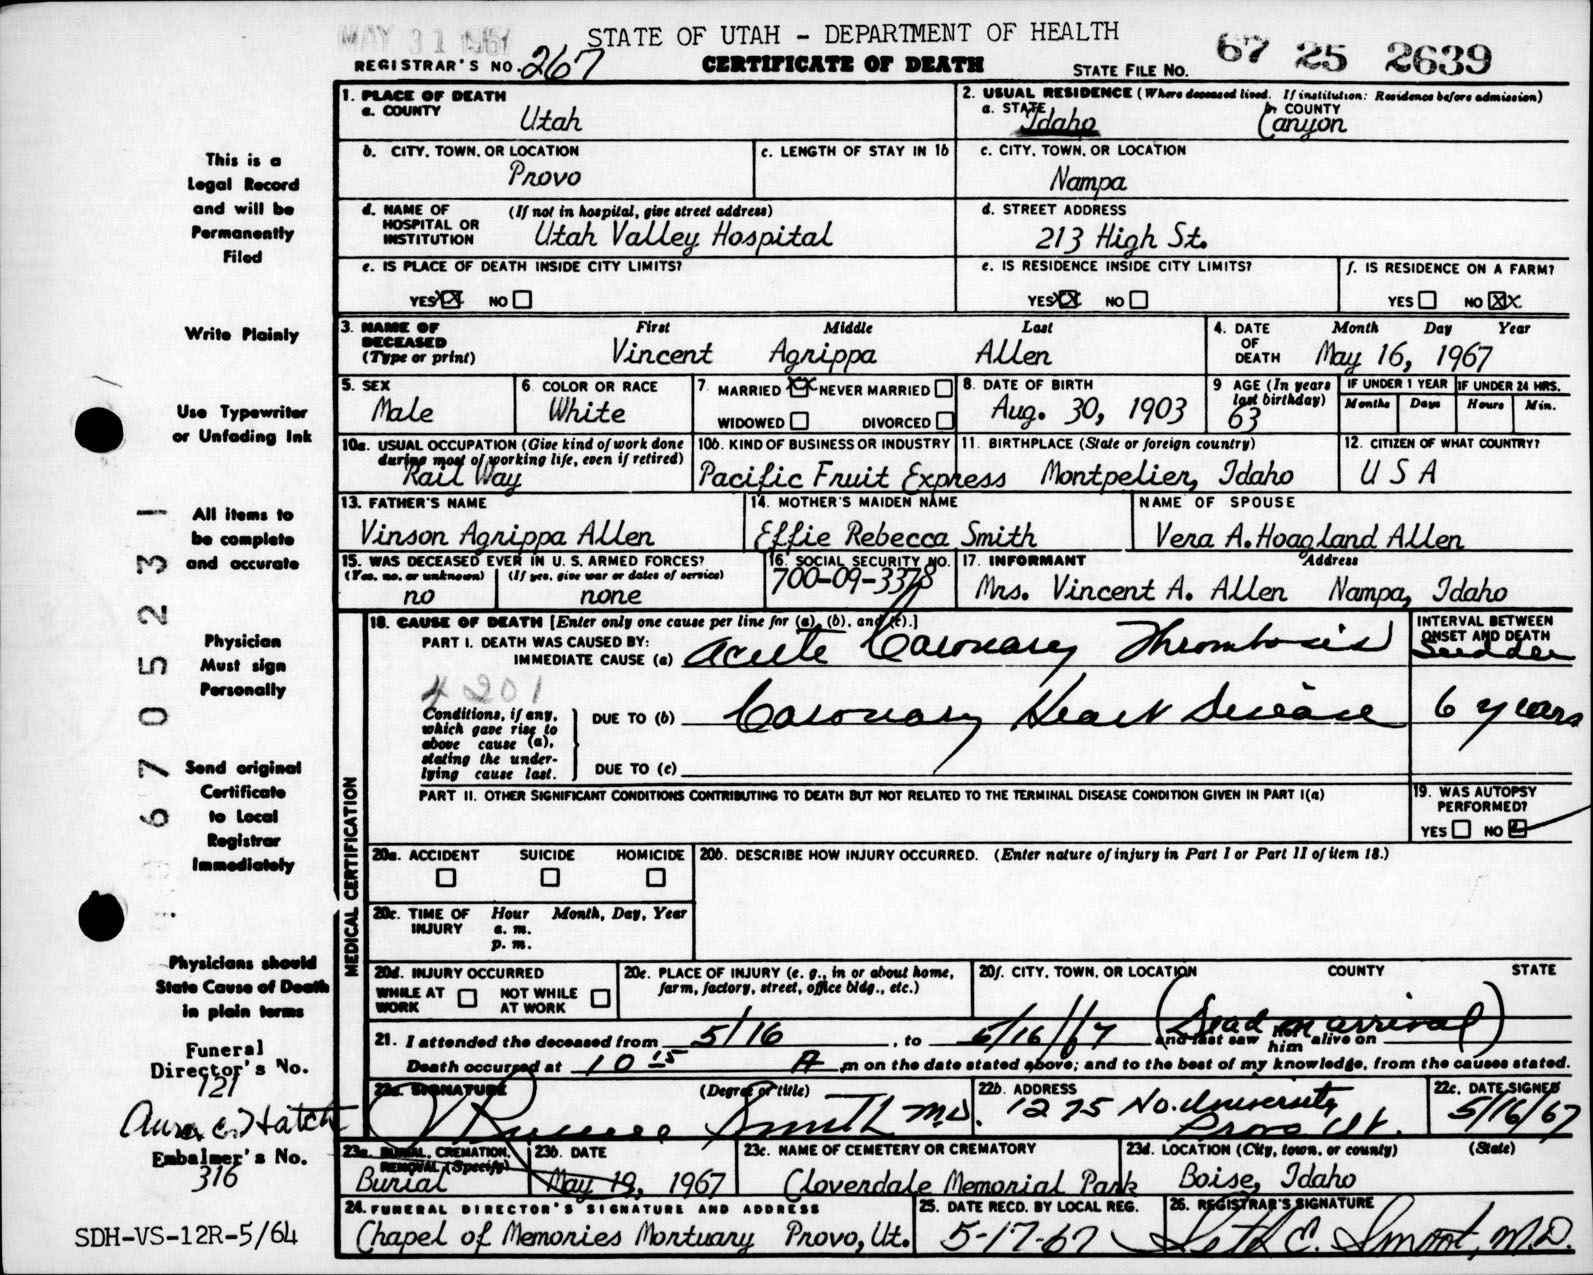 MAY 31 1967
STATE OF UTAH - DEPARTMENT OF HEALTH
REGISTRAR'S NO. 267 CERTIFICATE OF DEATH STATE FILE NO. 67 25 2639
1. PLACE OF DEATH
a. COUNTY Utah
2. USUAL RESIDENCE (Where deceased lived. If institution: Residence before admission)
a. STATE Idaho b. COUNTY Canyon
b. CITY, TOWN, OR LOCATION Provo
c. LENGTH OF STAY IN 1b
c. CITY, TOWN, OR LOCATION Nampa
d. NAME OF HOSPITAL OR INSTITUTION (If not in hospital, give street address)
Utah Valley Hospital
d. STREET ADDRESS
213 High St.
e. IS PLACE OF DEATH INSIDE CITY LIMITS?
YES XX NO
e. IS RESIDENCE INSIDE CITY LIMITS?
YES XX NO
f. IS RESIDENCE ON A FARM?
YES NO XX
3. NAME OF DECEASED (Type or print) First Middle Last
Vincent Agrippa Allen
4. DATE OF DEATH Month Day Year
May 16, 1967
5. SEX Male
6. COLOR OR RACE White
7. MARRIED XX NEVER MARRIED
WIDOWED DIVORCED
8. DATE OF BIRTH Aug. 30, 1903
9 AGE (In years last birthday) 63
IF UNDER 1 YEAR IF UNDER 24 HRS.
Months Days Hours Min.
10a. USUAL OCCUPATION (Give kind of work done during most of working life, even if retired)
Rail Way
10b. KIND OF BUSINESS OR INDUSTRY
Pacific Fruit Express
11. BIRTHPLACE (State or foreign country)
Montpelier, Idaho
12. CITIZEN OF WHAT COUNTRY?
U S A
13. FATHER'S NAME
Vinson Agrippa Allen
14. MOTHER'S MAIDEN NAME
Effie Rebecca Smith
NAME OF SPOUSE
Vera A. Hoagland Allen
15. WAS DECEASED EVER IN U. S. ARMED FORCES?
(Yes, no, or unknown) (If yes, give war or dates of service)
no none
16. SOCIAL SECURITY NO.
700-09-3378
17. INFORMANT Address
Mrs. Vincent A. Allen Nampa, Idaho
18. CAUSE OF DEATH [Enter only one cause per line for (a), (b), and (c).]
PART I. DEATH WAS CAUSED BY:
IMMEDIATE CAUSE (a) Acute Coronary Thrombosis
INTERVAL BETWEEN ONSET AND DEATH
Sudden
4201
Conditions, if any, which gave rise to above cause (a), stating the underlying cause last.
DUE TO (b) Coronary Heart Disease 6 years
DUE TO (c)
PART II. OTHER SIGNIFICANT CONDITIONS CONTRIBUTING TO DEATH BUT NOT RELATED TO THE TERMINAL DISEASE CONDITION GIVEN IN PART I(a)
19. WAS AUTOPSY PERFORMED?
YES NO
MEDICAL CERTIFICATION
20a. ACCIDENT SUICIDE HOMICIDE
20b. DESCRIBE HOW INJURY OCCURRED. (Enter nature of injury in Part I or Part II of item 18.)
20c. TIME OF INJURY Hour Month, Day, Year
a. m.
p. m.
20d. INJURY OCCURRED
WHILE AT WORK NOT WHILE AT WORK
20e. PLACE OF INJURY (e. g., in or about home, farm, factory, street, office bldg., etc.)
20f. CITY, TOWN, OR LOCATION COUNTY STATE
(Dead on arrival)
21. I attended the deceased from 5/16, to 5/16/67 and last saw him alive on
Death occurred at 10 15 A m on the date stated above; and to the best of my knowledge, from the causes stated.
22a. SIGNATURE (Degree or title)
Smith M.D.
22b. ADDRESS
1275 No. University
Provo Ut.
22c. DATE SIGNED
5/16/67
23a. BURIAL, CREMATION, REMOVAL (Specify)
Burial
23b. DATE
May 19, 1967
23c. NAME OF CEMETERY OR CREMATORY
Cloverdale Memorial Park
23d. LOCATION (City, town, or county) (State)
Boise, Idaho
24. FUNERAL DIRECTOR'S SIGNATURE AND ADDRESS
Chapel of Memories Mortuary Provo, Ut.
25. DATE RECD. BY LOCAL REG.
5-17-67
26. REGISTRAR'S SIGNATURE
Seth E. Smoot, M.D.
This is a
Legal Record
and will be
Permanently
Filed
Write Plainly
Use Typewriter
or Unfading Ink
All items to
be complete
and accurate
Physician
Must sign
Personally
Send original
Certificate
to Local
Registrar
Immediately
Physicians should
State Cause of Death
in plain terms
Funeral
Director's No.
121
Hatch
Embalmer's No.
316
SDH-VS-12R-5/64
6705231